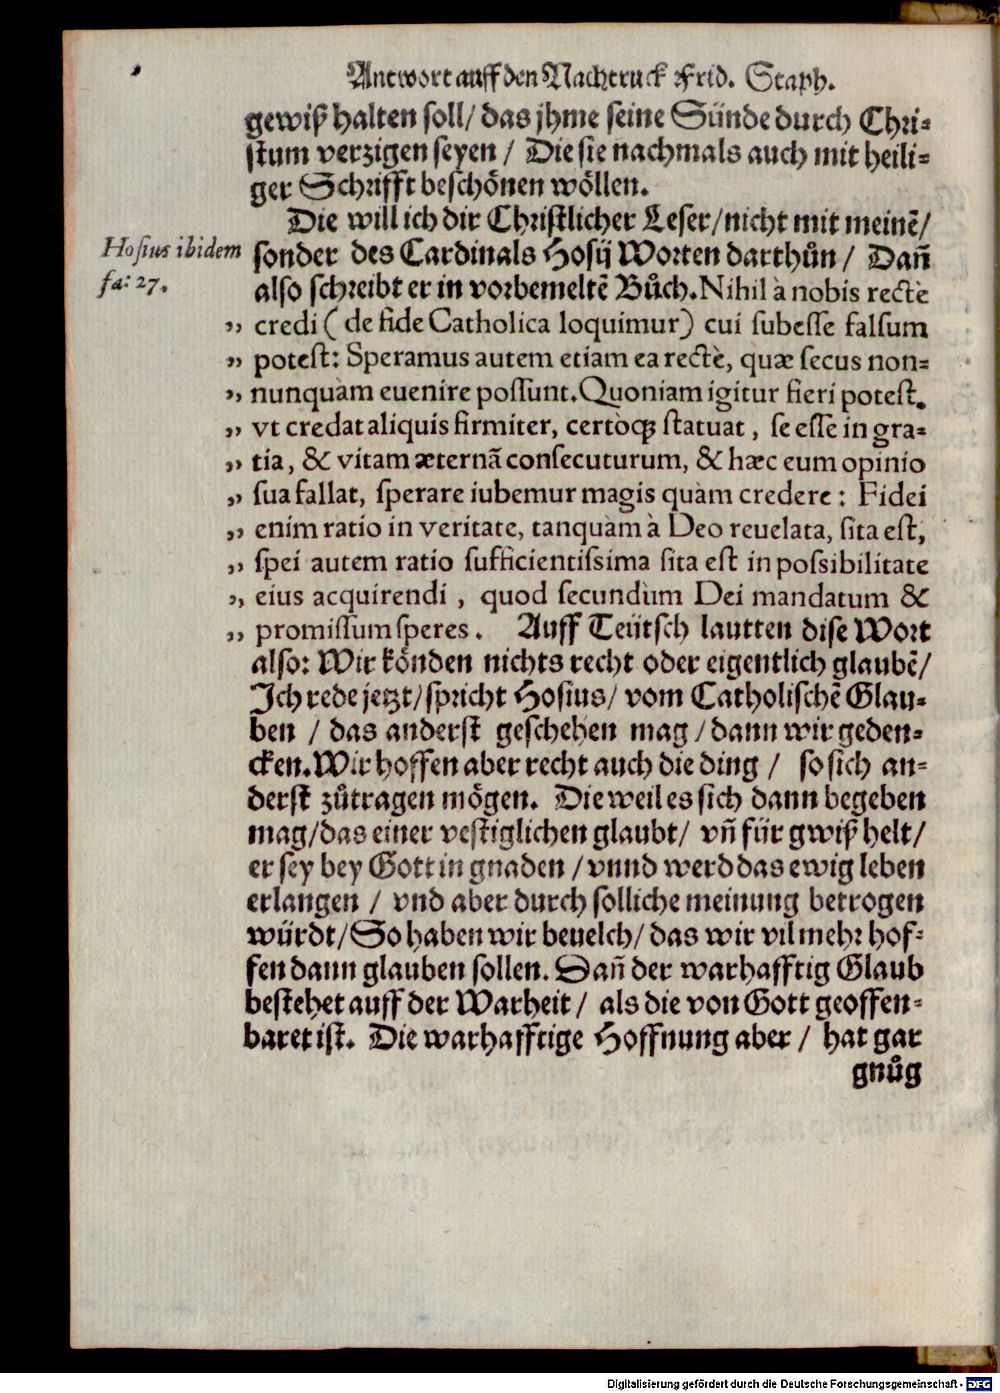 Antwort auff den Nachtruck Frid. Staph.
gewiß halten soll/ das jhme seine Sünde durch Chri⸗
stum verzigen seyen / Die sie nachmals auch mit heili⸗
ger Schrifft beschönen wöllen.
Die will ich dir Christlicher Leser/nicht mit meinẽ/
Hosius ibidem
fa: 27.
sonder des Cardinals Hosij Worten darthůn / Dañ
also schreibt er in vorbemeltẽ Bůch. Nihil à nobis rectè
„ credi ( de fide Catholica loquimur) cui subesse falsum
„ potest: Speramus autem etiam ea rectè, quæ secus non⸗
„ nunquàm euenire possunt. Quoniam igitur fieri potest.
„ vt credat aliquis firmiter, certòq́; statuat , se esse in gra⸗
„ tia, & vitam æternã consecuturum, & hæc eum opinio
„ sua fallat, sperare iubemur magis quàm credere : Fidei
„ enim ratio in veritate, tanquàm à Deo reuelata, sita est,
„ spei autem ratio sufficientissima sita est in possibilitate
„ eius acquirendi , quod secundùm Dei mandatum &
„ promissum speres . Auff Teütsch lautten dise Wort
also: Wir könden nichts recht oder eigentlich glaubẽ/
Ich rede jetzt/spricht Hosius/ vom Catholischẽ Glau⸗
ben / das anderst geschehen mag / dann wir geden⸗
cken. Wir hoffen aber recht auch die ding / so sich an⸗
derst zůtragen mögen. Die weil es sich dann begeben
mag/das einer vestiglichen glaubt/ vñ für gwiß helt/
er sey bey Gott in gnaden / vnnd werd das ewig leben
erlangen / vnd aber durch solliche meinung betrogen
würdt/So haben wir beuelch/ das wir vil mehr hof⸗
fen dann glauben sollen. Dañ der warhafftig Glaub
bestehet auff der Warheit / als die von Gott geoffen⸗
baret ist. Die warhafftige Hoffnung aber / hat gar
gnůg
Digitalisierung gefördert durch die Deutsche Forschungsgemeinschaft - DFG